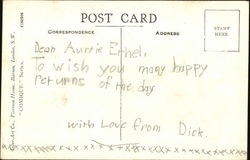 POST CARD
CORRESPONDENCE
ADDRESS
STAMP
HERE
Dear Auntie Ethel,
To wish you many happy
returns of the day
with Love from Dick.
"COMIQUE" Series.